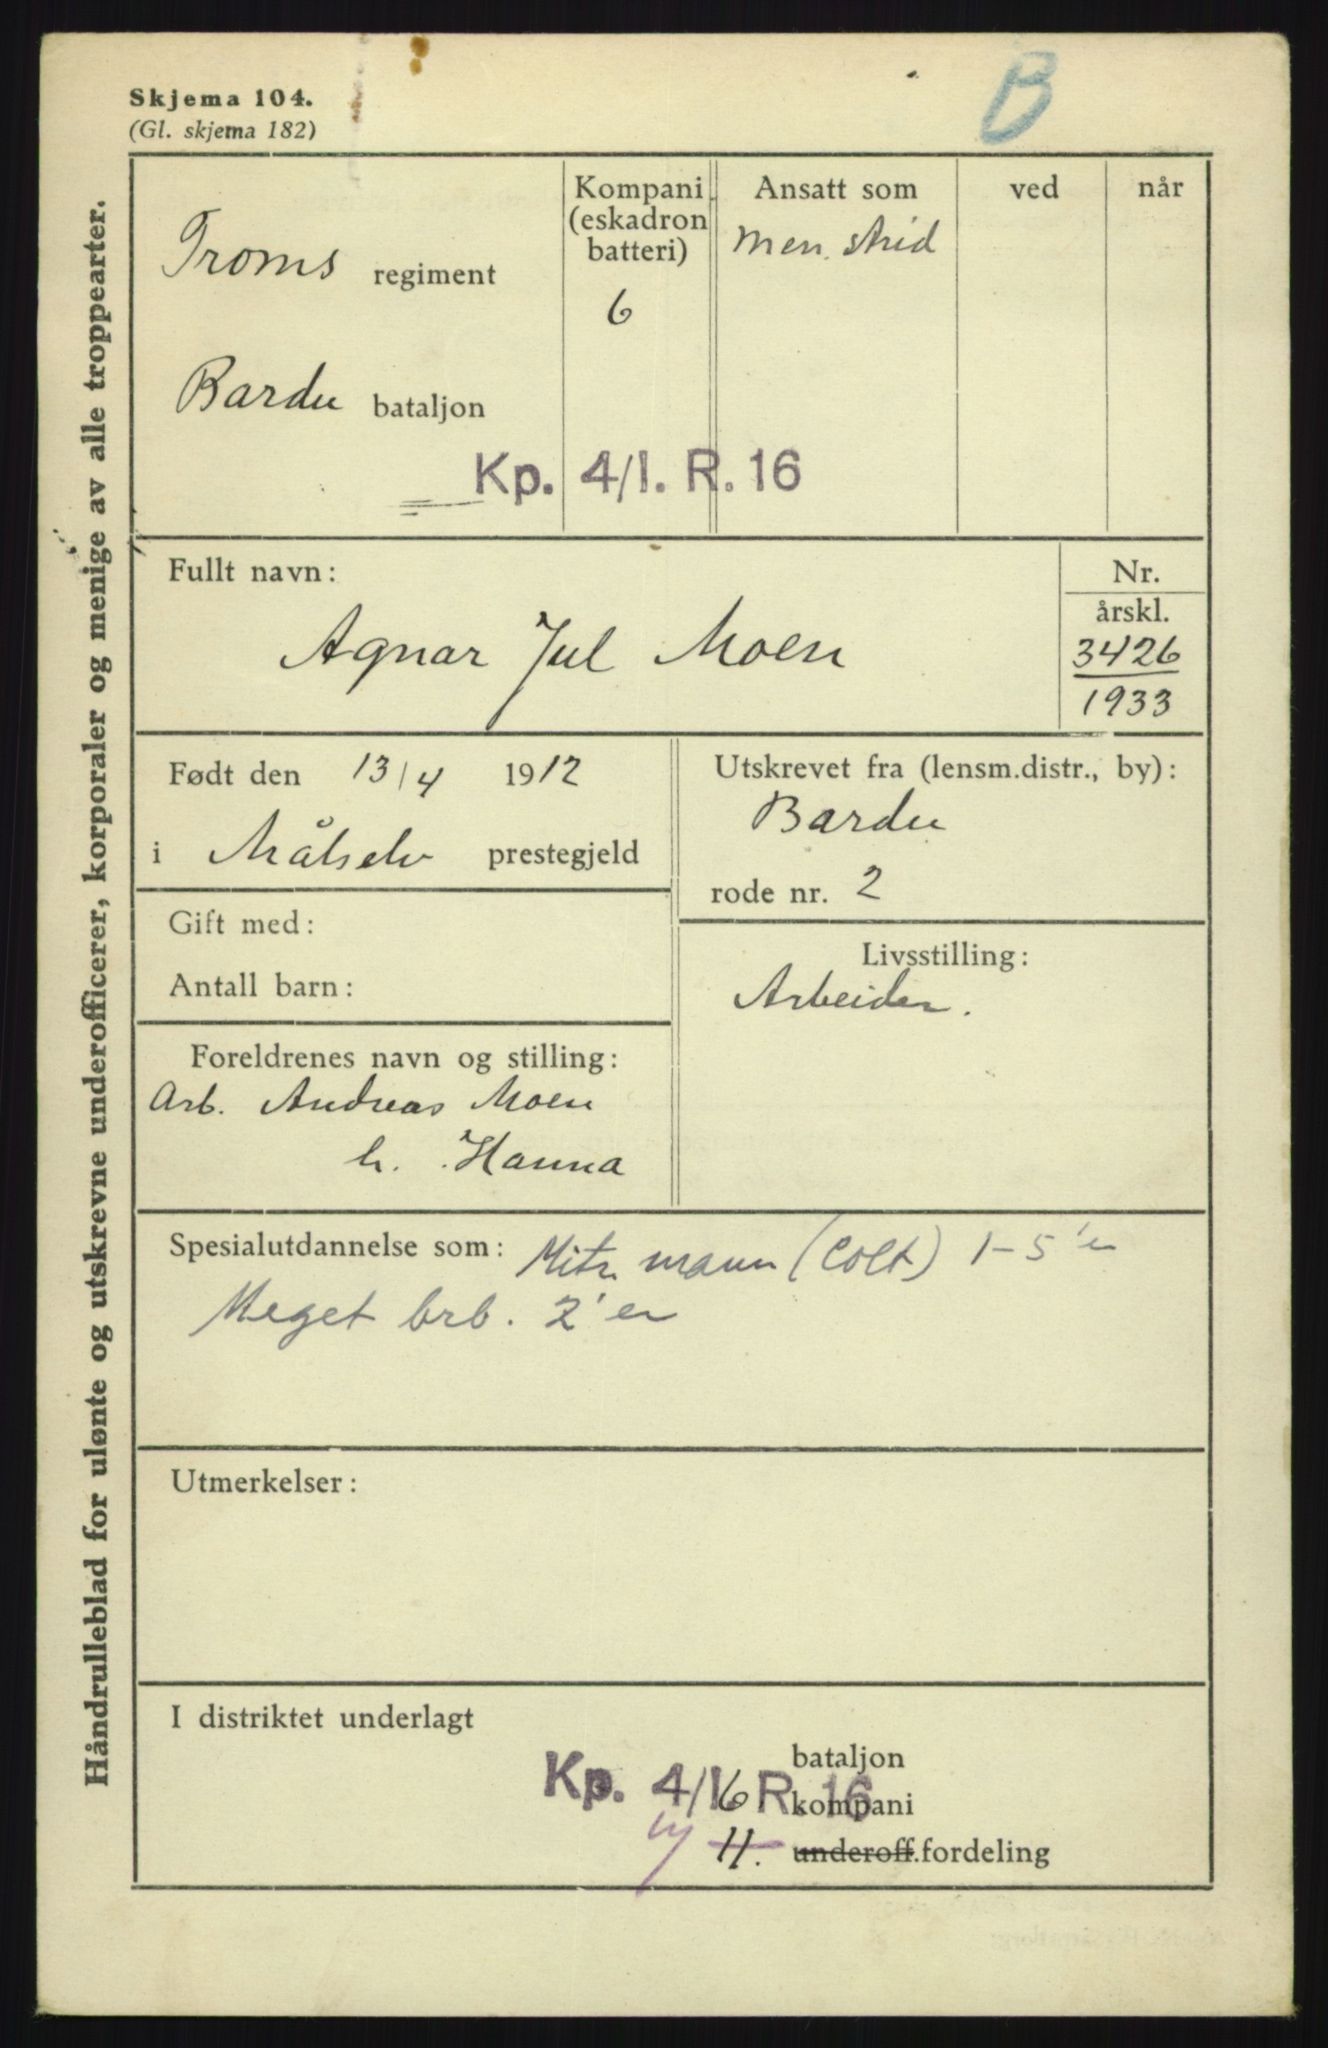 B
Skjema 104.
(Gl. skjema 182)
Håndrulleblad for ulønte og utskrevne underofficerer, korporaler og menige av alle troppearter.
Troms regiment
Bardu bataljon
Kompani (eskadron batteri)
6
Ansatt som
men. strid
ved
når
Kp. 4/I. R. 16
Fullt navn:
Agnar Jul Moen
Nr.
årskl.
3426
1933
Født den 13/4 1912
i Målselv prestegjeld
Utskrevet fra (lensm.distr., by):
Bardu
rode nr. 2
Gift med:
Antall barn:
Livsstilling:
Arbeider.
Foreldrenes navn og stilling:
Arb. Andreas Moen
h. Hanna
Spesialutdannelse som: Mitr. mann (Colt) 1-5'er
Meget brb. 2'er
Utmerkelser:
I distriktet underlagt
bataljon
Kp. 4/I. R. 16
6 kompani
II. underoff.fordeling